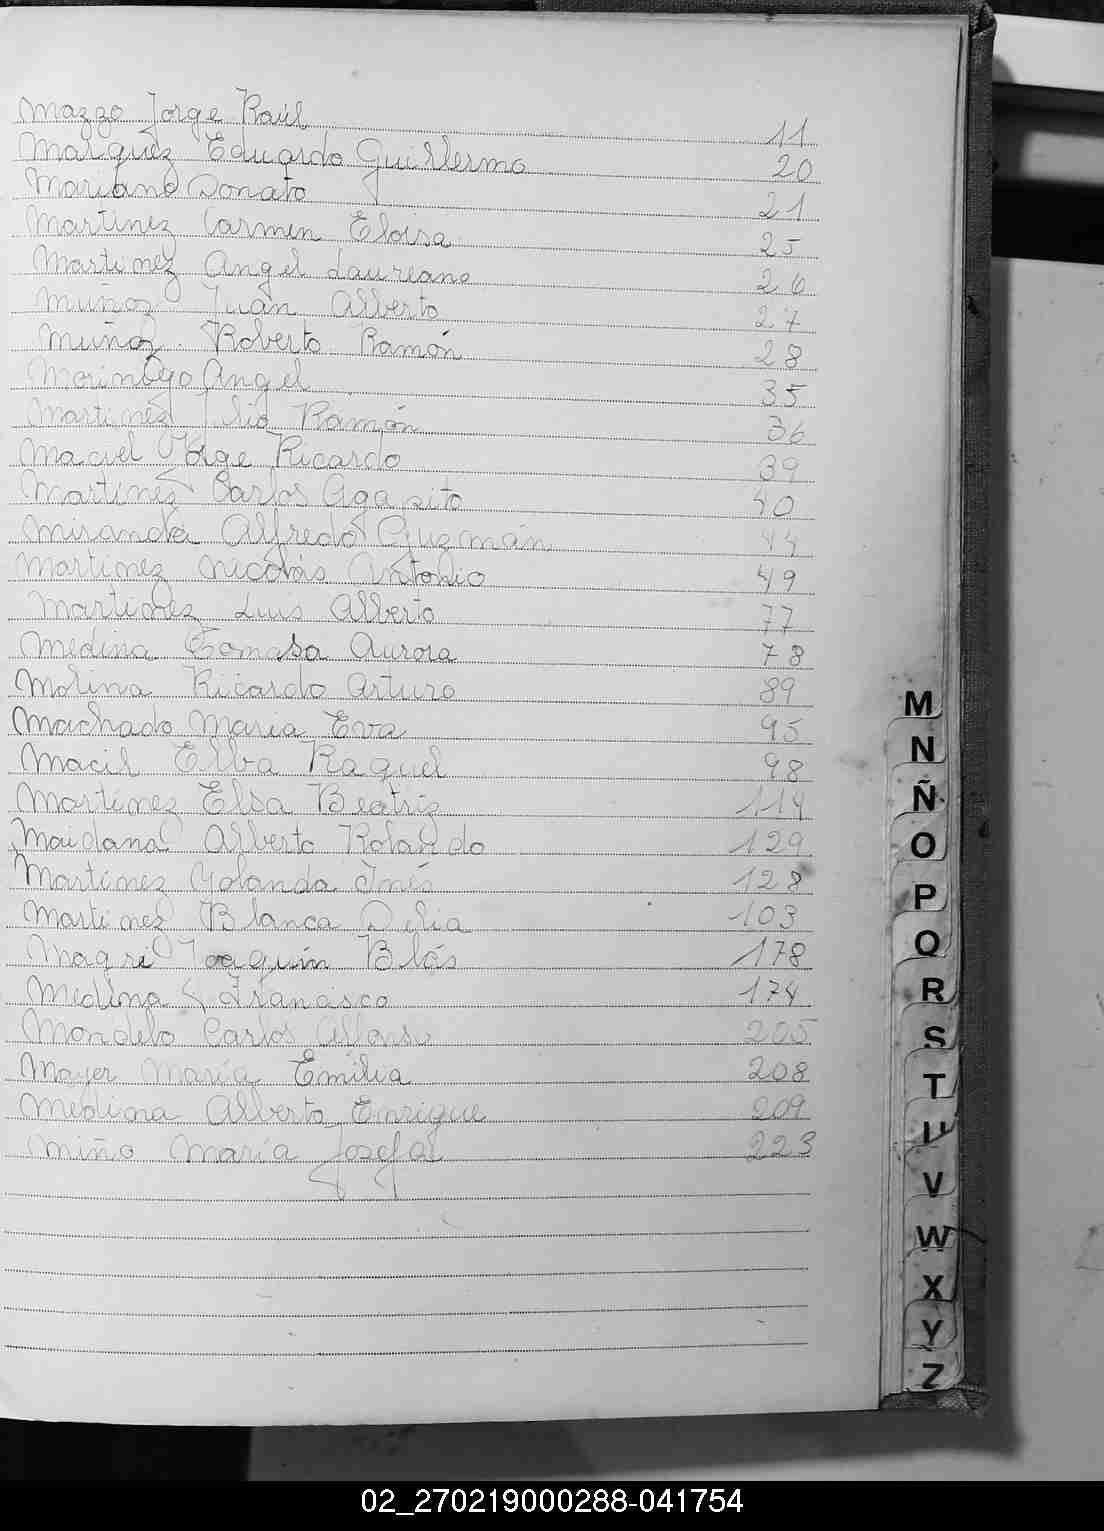 Mazzo Jorge Raúl 11
Marquez Eduardo Guillermo 20
Mariano Donato 21
Martinez Carmen Eloisa 25
Martinez Angel Laureano 26
Muñoz Juan Alberto 27
Muñoz Roberto Ramón 28
Angel 35
Martinez Julio Ramón 36
Maciel Jorge Ricardo 39
Martinez Carlos Agapito 40
Miranda Alfredo Guzmán 44
Martinez Nicolás Antonio 49
Martinez Luis Alberto 77
Medina Tomasa Aurora 78
Molina Ricardo Arturo 89
Machado Maria Eva 95
Maciel Elba Raquel 98
Martinez Elsa Beatriz 114
Maidana Alberto Rolando 129
Martinez Yolanda Inés 128
Martinez Blanca Delia 103
Magri Joaquín Blás 178
Medina Francisco 174
Mondelo Carlos Alfonso 205
Mayer María Emilia 208
Medina Alberto Enrique 209
Miño María Josefa 223
M
N
Ñ
O
P
Q
R
S
T
U
V
W
X
Y
Z
02_270219000288-041754